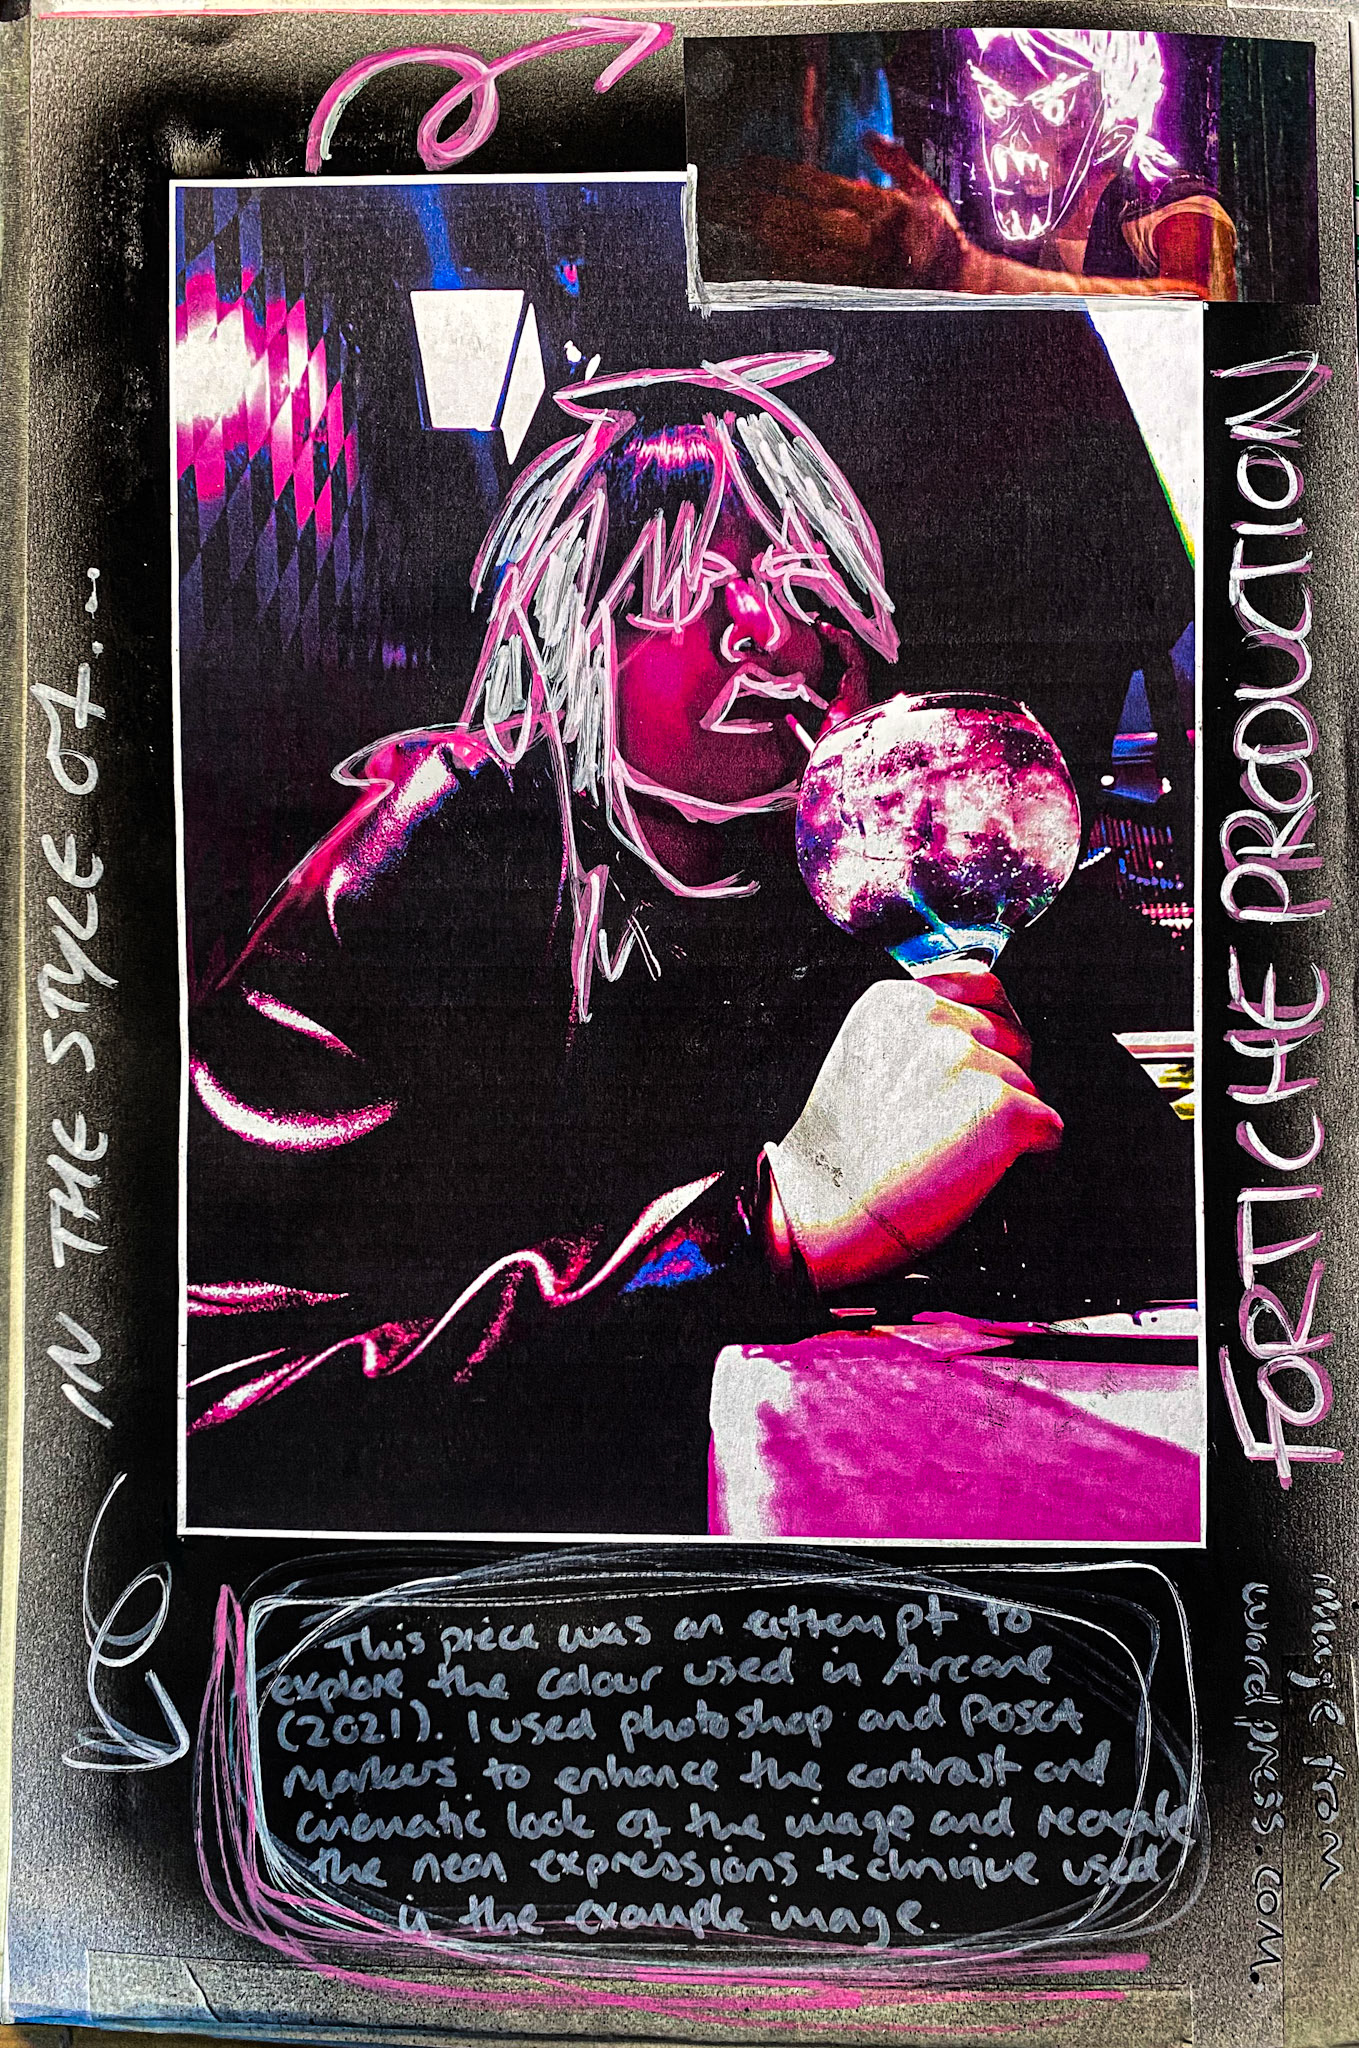 IN THE STYLE OF...
FORTICHE PRODUCTION
This piece was an attempt to
explore the colour used in Arcane
(2021). I used photoshop and POSCA
markers to enhance the contrast and
cinematic look of the image and recreate
the neon expressions technique used
in the example image.
image from
wordpress.com.